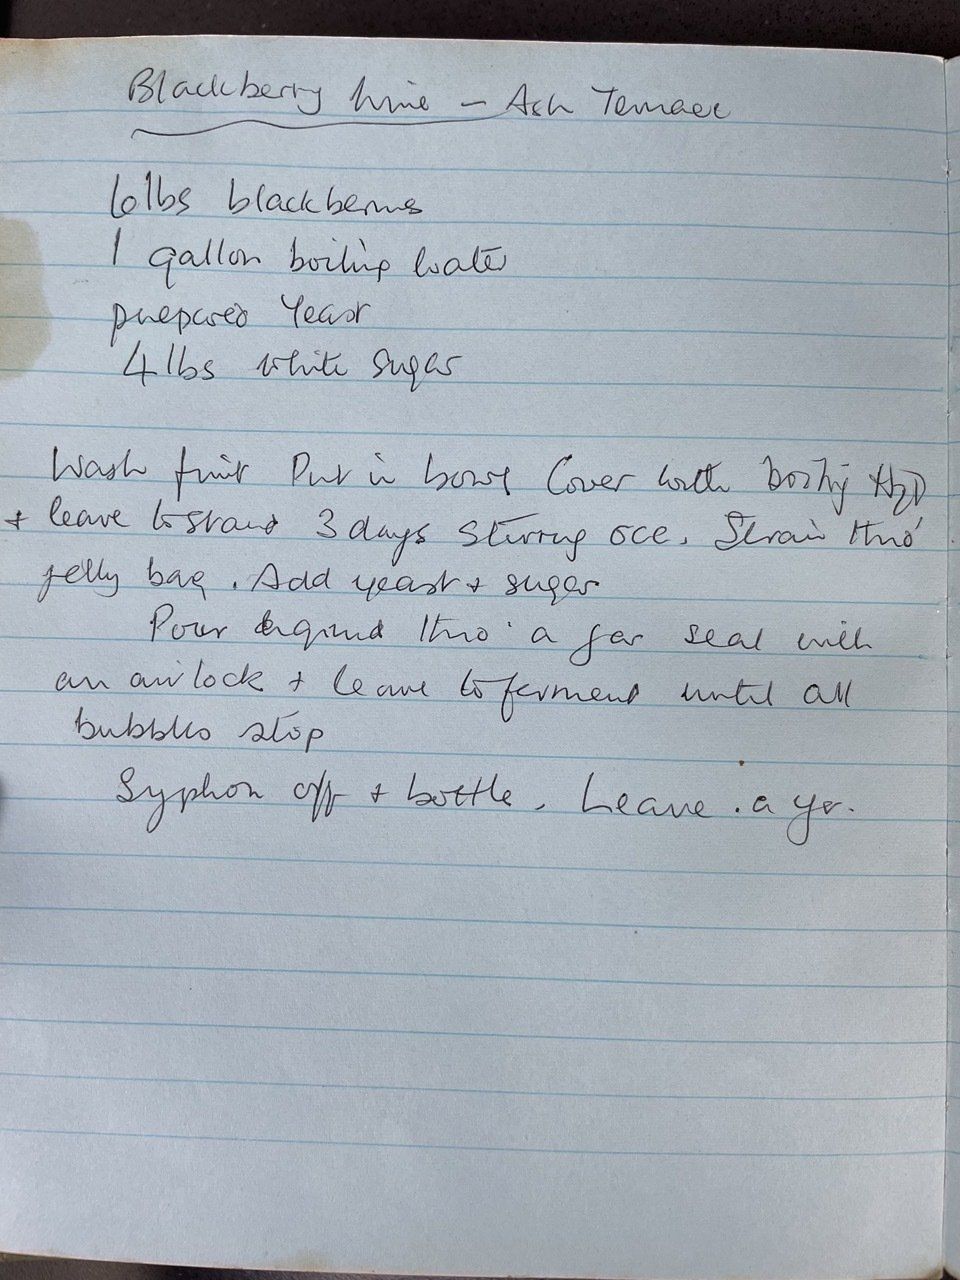 Blackberry Wine - Ash Terrace
6lbs blackberries
1 gallon boiling water
prepared Yeast
4 lbs white sugar
Wash fruit Put in bowl Cover with boiling H2O
+ leave to stand 3 days stirring occ. Strain thro'
jelly bag. Add yeast + sugar
Pour liquid thro' a jar seal with
an airlock + leave to ferment until all
bubbles stop
Syphon off + bottle. Leave a yr.